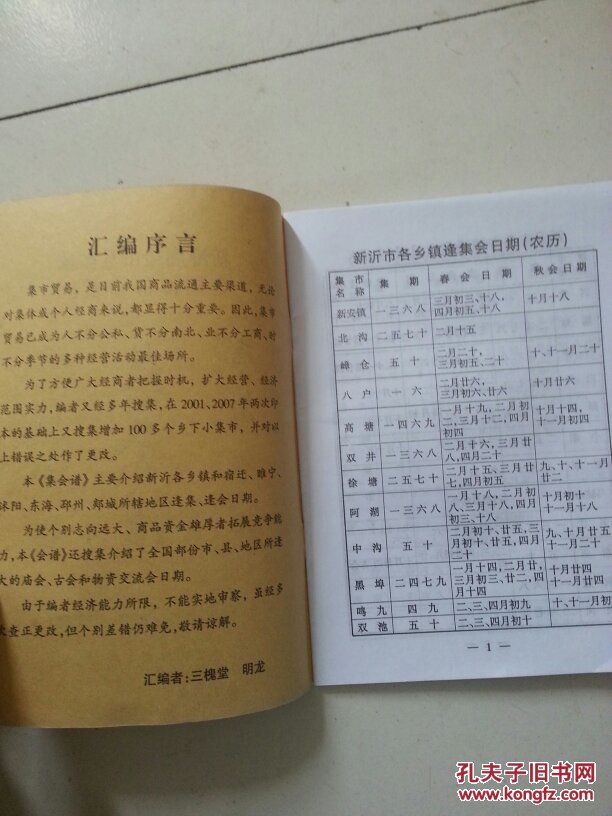 汇编序言
集市贸易，是目前我国商品流通主要渠道，无论
对集体或个人经商来说，都显得十分重要。因此，集市
贸易已成为人不分公私、货不分南北、业不分工商、时
不分季节的多种经营活动最佳场所。
为了方便广大经商者把握时机，扩大经营、经济
范围实力，编者又经多年搜集，在2001、2007年两次印
本的基础上又搜集增加100多个乡下小集市，并对以
上错误之处作了更改。
本《集会谱》主要介绍新沂各乡镇和宿迁、睢宁、
沭阳、东海、邳州、郯城所辖地区逢集、逢会日期。
为使个别志向远大、商品资金雄厚者拓展竞争能
力，本《会谱》还搜集介绍了全国部份市、县、地区所逢
大的庙会、古会和物资交流会日期。
由于编者经济能力所限，不能实地审察，虽经多
次查正更改，但个别差错仍难免，敬请谅解。
汇编者：三槐堂 明龙
新沂市各乡镇逢集会日期（农历）
集市名称 集期 春会日期 秋会日期
新安镇 一三六八 三月初三、十八，四月初五、十八 十月十八
北沟 二五七十 二月十五
嶂仓 五十 二月二十，三月初五、二十 十、十一月二十
八户 一六 二月廿六，三月初六、廿六 十月廿六
高塘 一四六九 一月十九，二月初二，三月十二，四月初四 十月十四，十一月初四
双井 二月十六，三月廿八，四月二十
徐塘 二五七十 二月十五，三月廿五，四月初五 九、十、十一月廿二
阿湖 一三六八 一月十八，二月初八，三月十八，四月初三、十八 十月初十，十一月十八
中沟 五十 二月初十、廿五，三月初十、廿五，四月二十 九、十月廿五，十一月二十
黑埠 二四七九 一月十四，二月廿，三月初三、廿二，四月十四 十月廿四，十一月廿四
鸣九 四九 二、三、四月初九 十、十一月初九
双池 五十 二、三、四月初十
— 1 —
孔夫子旧书网
www.kongfz.com